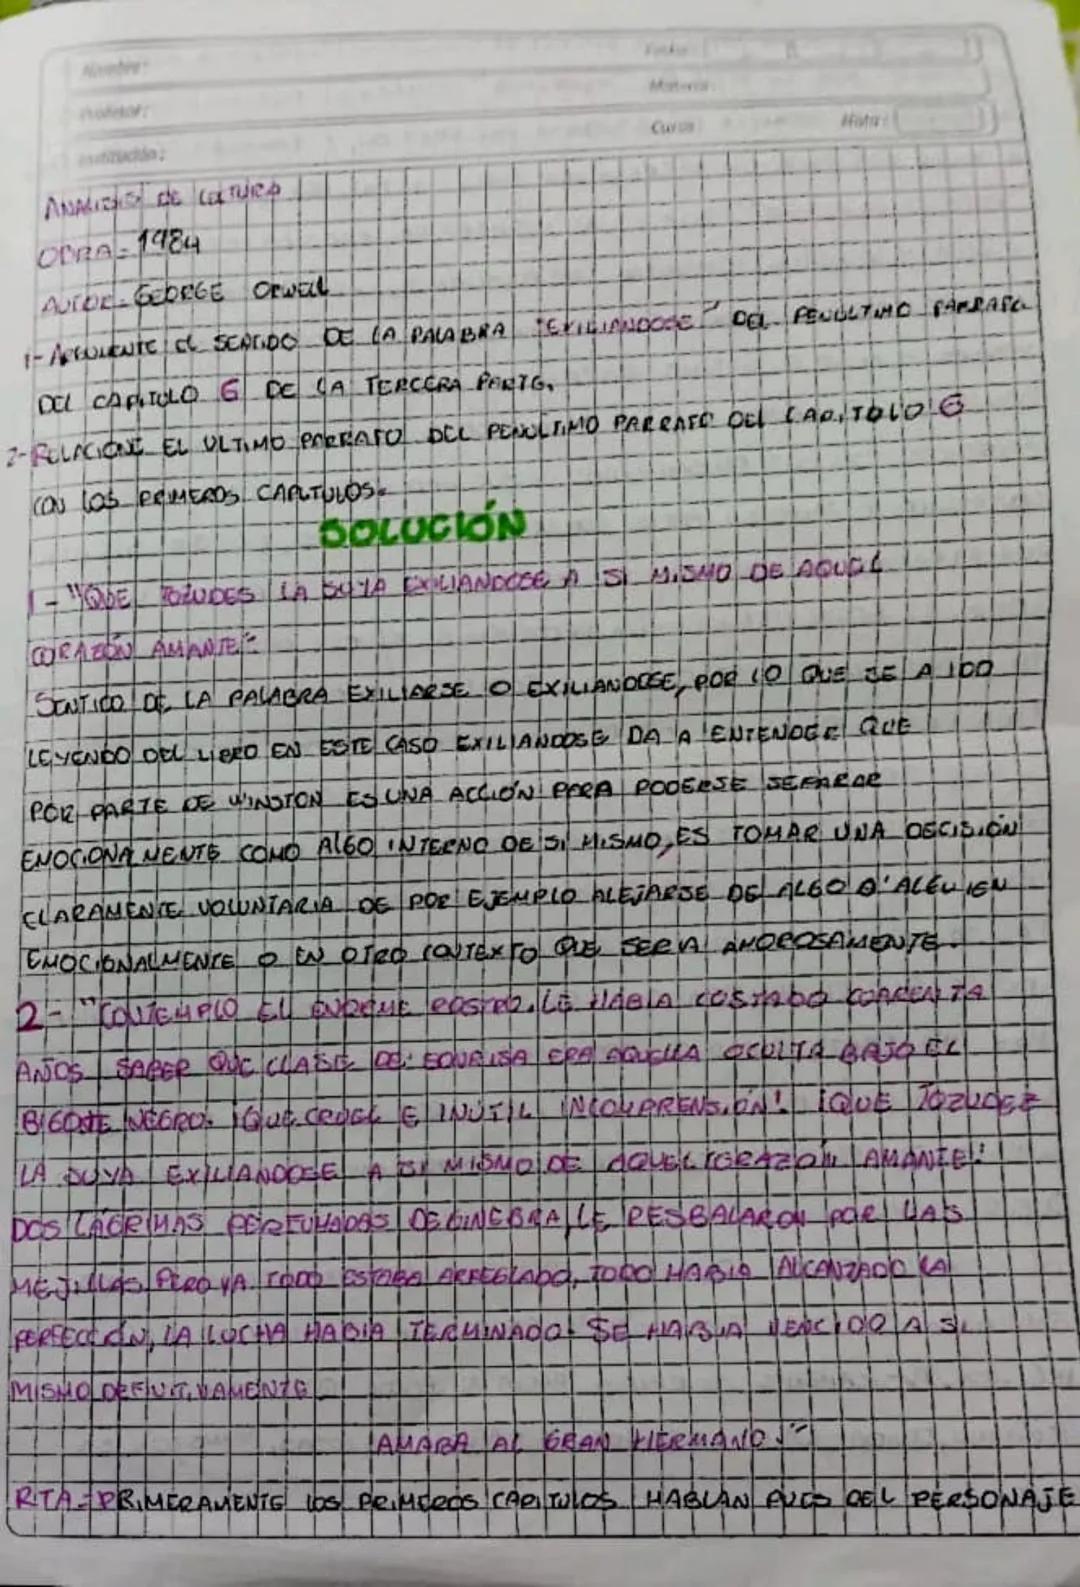 Nombre:
Fecha:
Profesor:
Materia:
Institución:
Curso:
Nota:
ANALISIS DE LECTURA
OBRA = 1984
AUTOR = GEORGE ORWELL
1- ARGUMENTE EL SENTIDO DE LA PALABRA "EXILIANDOSE" DEL PENULTIMO PARRAFO
DEL CAPITULO 6 DE LA TERCERA PARTE.
2- RELACIONE EL ULTIMO PARRAFO DEL PENULTIMO PARRAFO DEL CAPITULO 6
CON LOS PRIMEROS CAPITULOS.
SOLUCIÓN
1- "QUE TOZUDES LA SUYA EXILIANDOSE A SI MISMO DE AQUEL
CORAZÓN AMANTE"
SENTIDO DE LA PALABRA EXILIARSE O EXILIANDOSE, POR LO QUE SE A IDO
LEYENDO DEL LIBRO EN ESTE CASO EXILIANDOSE DA A ENTENDER QUE
POR PARTE DE WINSTON ES UNA ACCIÓN PARA PODERSE SEPARAR
EMOCIONALMENTE COMO ALGO INTERNO DE SI MISMO, ES TOMAR UNA DECISIÓN
CLARAMENTE VOLUNTARIA DE POR EJEMPLO ALEJARSE DE ALGO O ALGUIEN
EMOCIONALMENTE O EN OTRO CONTEXTO QUE SERIA AMOROSAMENTE.
2- "CONTEMPLO EL ENORME ROSTRO. LE HABIA COSTADO CUARENTA
AÑOS SABER QUE CLASE DE SONRISA ERA AQUELLA OCULTA BAJO EL
BIGOTE NEGRO. ¡QUE CRUEL E INÚTIL INCOMPRENSIÓN! ¡QUE TOZUDEZ
LA SUYA EXILIANDOSE A SI MISMO DE AQUEL CORAZÓN AMANTE!
DOS LÁGRIMAS PERFUMADAS DE GINEBRA LE RESBALARON POR LAS
MEJILLAS. PERO YA TODO ESTABA ARREGLADO, TODO HABIA ALCANZADO LA
PERFECCIÓN, LA LUCHA HABIA TERMINADO. SE HABIA VENCIDO A SI
MISMO DEFINITIVAMENTE
AMABA AL GRAN HERMANO."
RTA = PRIMERAMENTE LOS PRIMEROS CAPITULOS HABLAN PUES DEL PERSONAJE